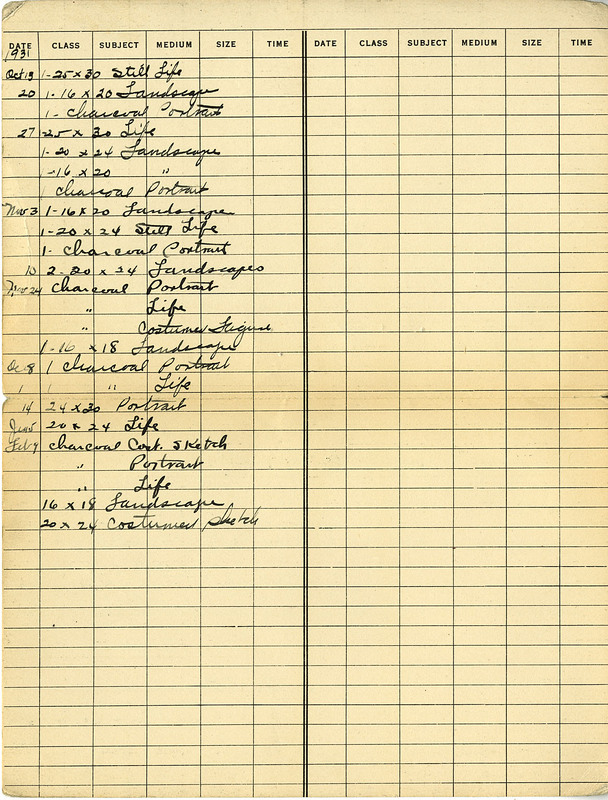 DATE CLASS SUBJECT MEDIUM SIZE TIME DATE CLASS SUBJECT MEDIUM SIZE TIME
1931
Oct 13 1-25 x 30 Still Life
20 1-16 x 20 Landscape
1- Charcoal Portrait
27 25 x 30 Life
1-20 x 24 Landscape
1-16 x 20 "
1 Charcoal Portrait
Nov 3 1-16 x 20 Landscape
1-20 x 24 Still Life
1- Charcoal Portrait
10 2-20 x 24 Landscapes
Nov 24 Charcoal Portrait
" Life
" Costumed Figure
1-16 x 18 Landscape
Dec 8 1 Charcoal Portrait
1 1 " Life
14 24 x 30 Portrait
Jan 5 20 x 24 Life
Feb 9 Charcoal Cost. Sketch
" Portrait
" Life
16 x 18 Landscape
20 x 24 Costumed Sketch